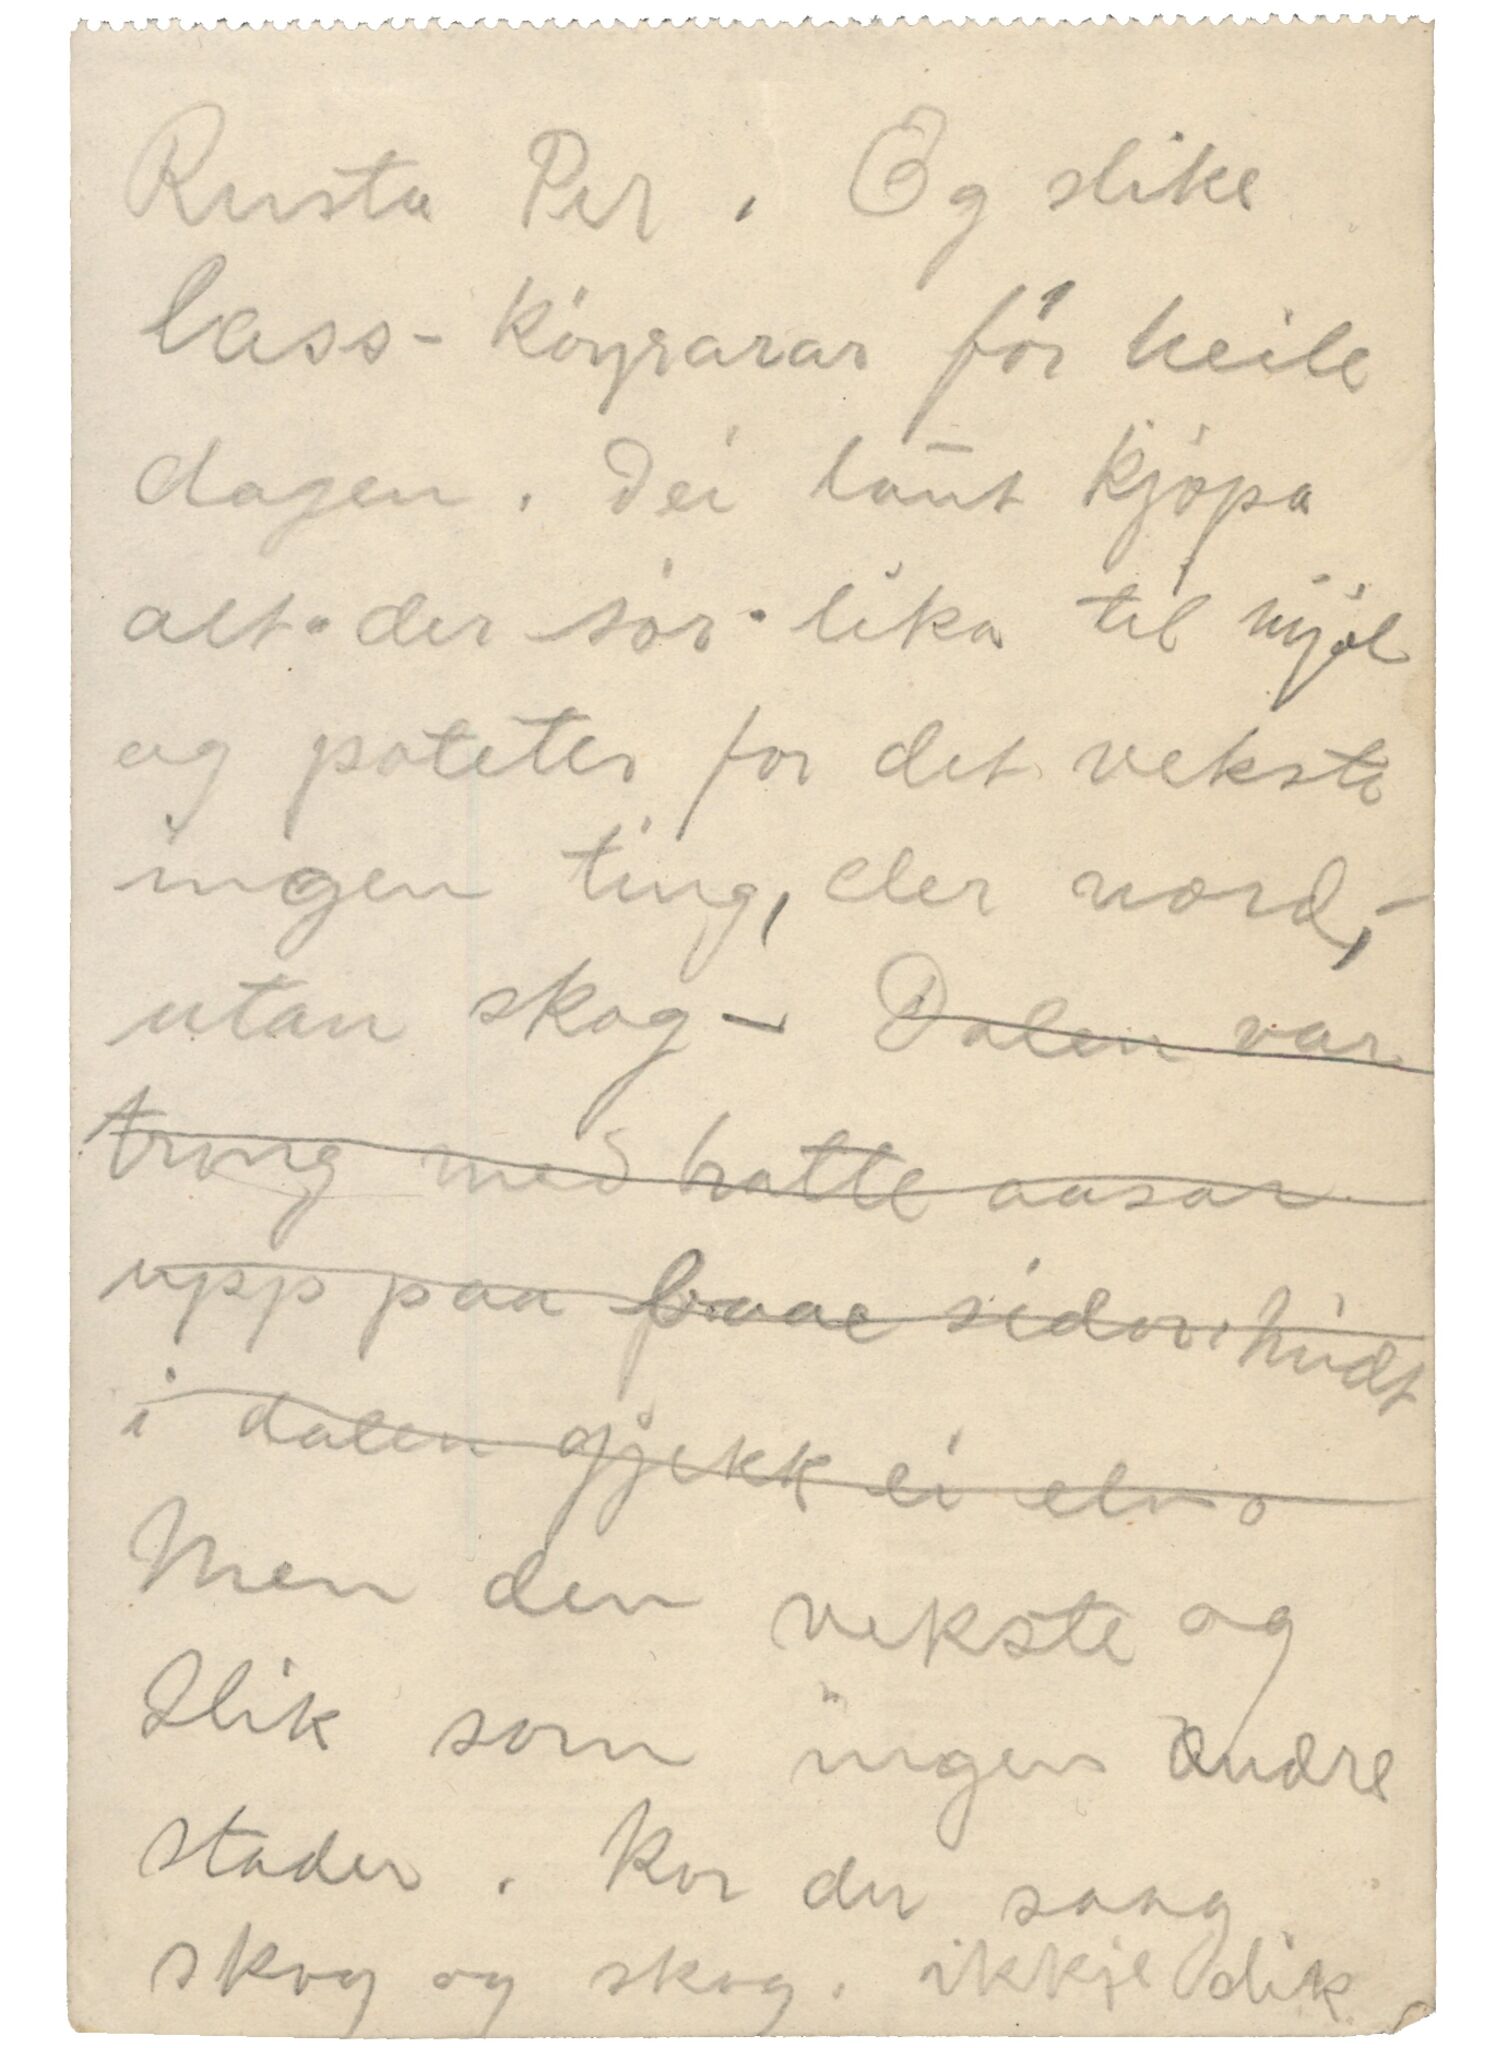 Rusta Per. Og slike
lass-köyrarar för heile
dagen. Dei laut kjöpa
alt der sör. lika til mjöl
og poteter for det vekste
ingen ting, der nord, -
utan skog - Dalen var
trong med bratte aasar
upp paa baae sidor. Midt
i dalen gjekk ei elv.
Men den vekste og
slik som ingen andre
stader. Kor du saag
skog og skog. ikkje slik